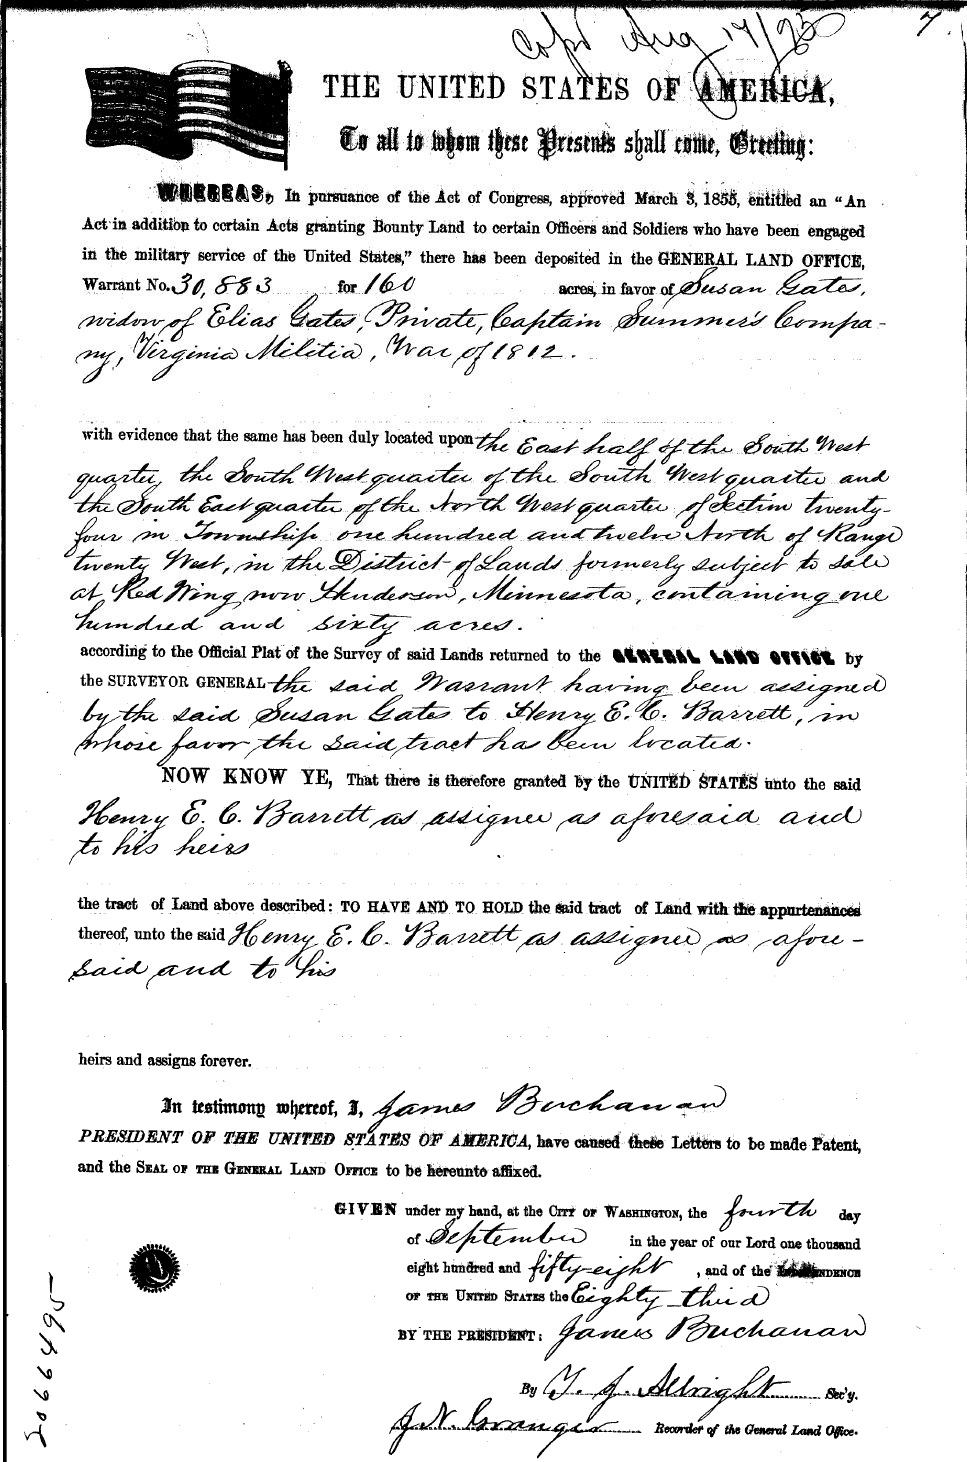 Cop'd Aug 17/25
7.
THE UNITED STATES OF AMERICA,
To all to whom these Presents shall come, Greeting:
WHEREAS, In pursuance of the Act of Congress, approved March 3, 1855, entitled an "An
Act in addition to certain Acts granting Bounty Land to certain Officers and Soldiers who have been engaged
in the military service of the United States," there has been deposited in the GENERAL LAND OFFICE,
Warrant No. 30,883 for 160 acres, in favor of Susan Gates,
widow of Elias Gates, Private, Captain Summer's Compa-
ny, Virginia Militia, War of 1812.
with evidence that the same has been duly located upon the East half of the South West
quarter, the South West quarter of the South West quarter and
the South East quarter of the North West quarter of Section twenty-
four in Township one hundred and twelve North of Range
twenty West, in the District of Lands formerly subject to sale
at Red Wing now Henderson, Minnesota, containing one
hundred and sixty acres.
according to the Official Plat of the Survey of said Lands returned to the GENERAL LAND OFFICE by
the SURVEYOR GENERAL the said Warrant having been assigned
by the said Susan Gates to Henry E. C. Barrett, in
whose favor the said tract has been located.
NOW KNOW YE, That there is therefore granted by the UNITED STATES unto the said
Henry E. C. Barrett as assignee as aforesaid and
to his heirs
the tract of Land above described: TO HAVE AND TO HOLD the said tract of Land with the appurtenances
thereof, unto the said Henry E. C. Barrett as assignee as afore-
said and to his
heirs and assigns forever.
In testimony whereof, I, James Buchanan
PRESIDENT OF THE UNITED STATES OF AMERICA, have caused these Letters to be made Patent,
and the SEAL OF THE GENERAL LAND OFFICE to be hereunto affixed.
GIVEN under my hand, at the CITY OF WASHINGTON, the fourth day
of September in the year of our Lord one thousand
eight hundred and fifty-eight, and of the INDEPENDENCE
OF THE UNITED STATES the Eighty-third
BY THE PRESIDENT: James Buchanan
By T. J. Albright Sec'y.
J. N. Granger Recorder of the General Land Office.
2066495